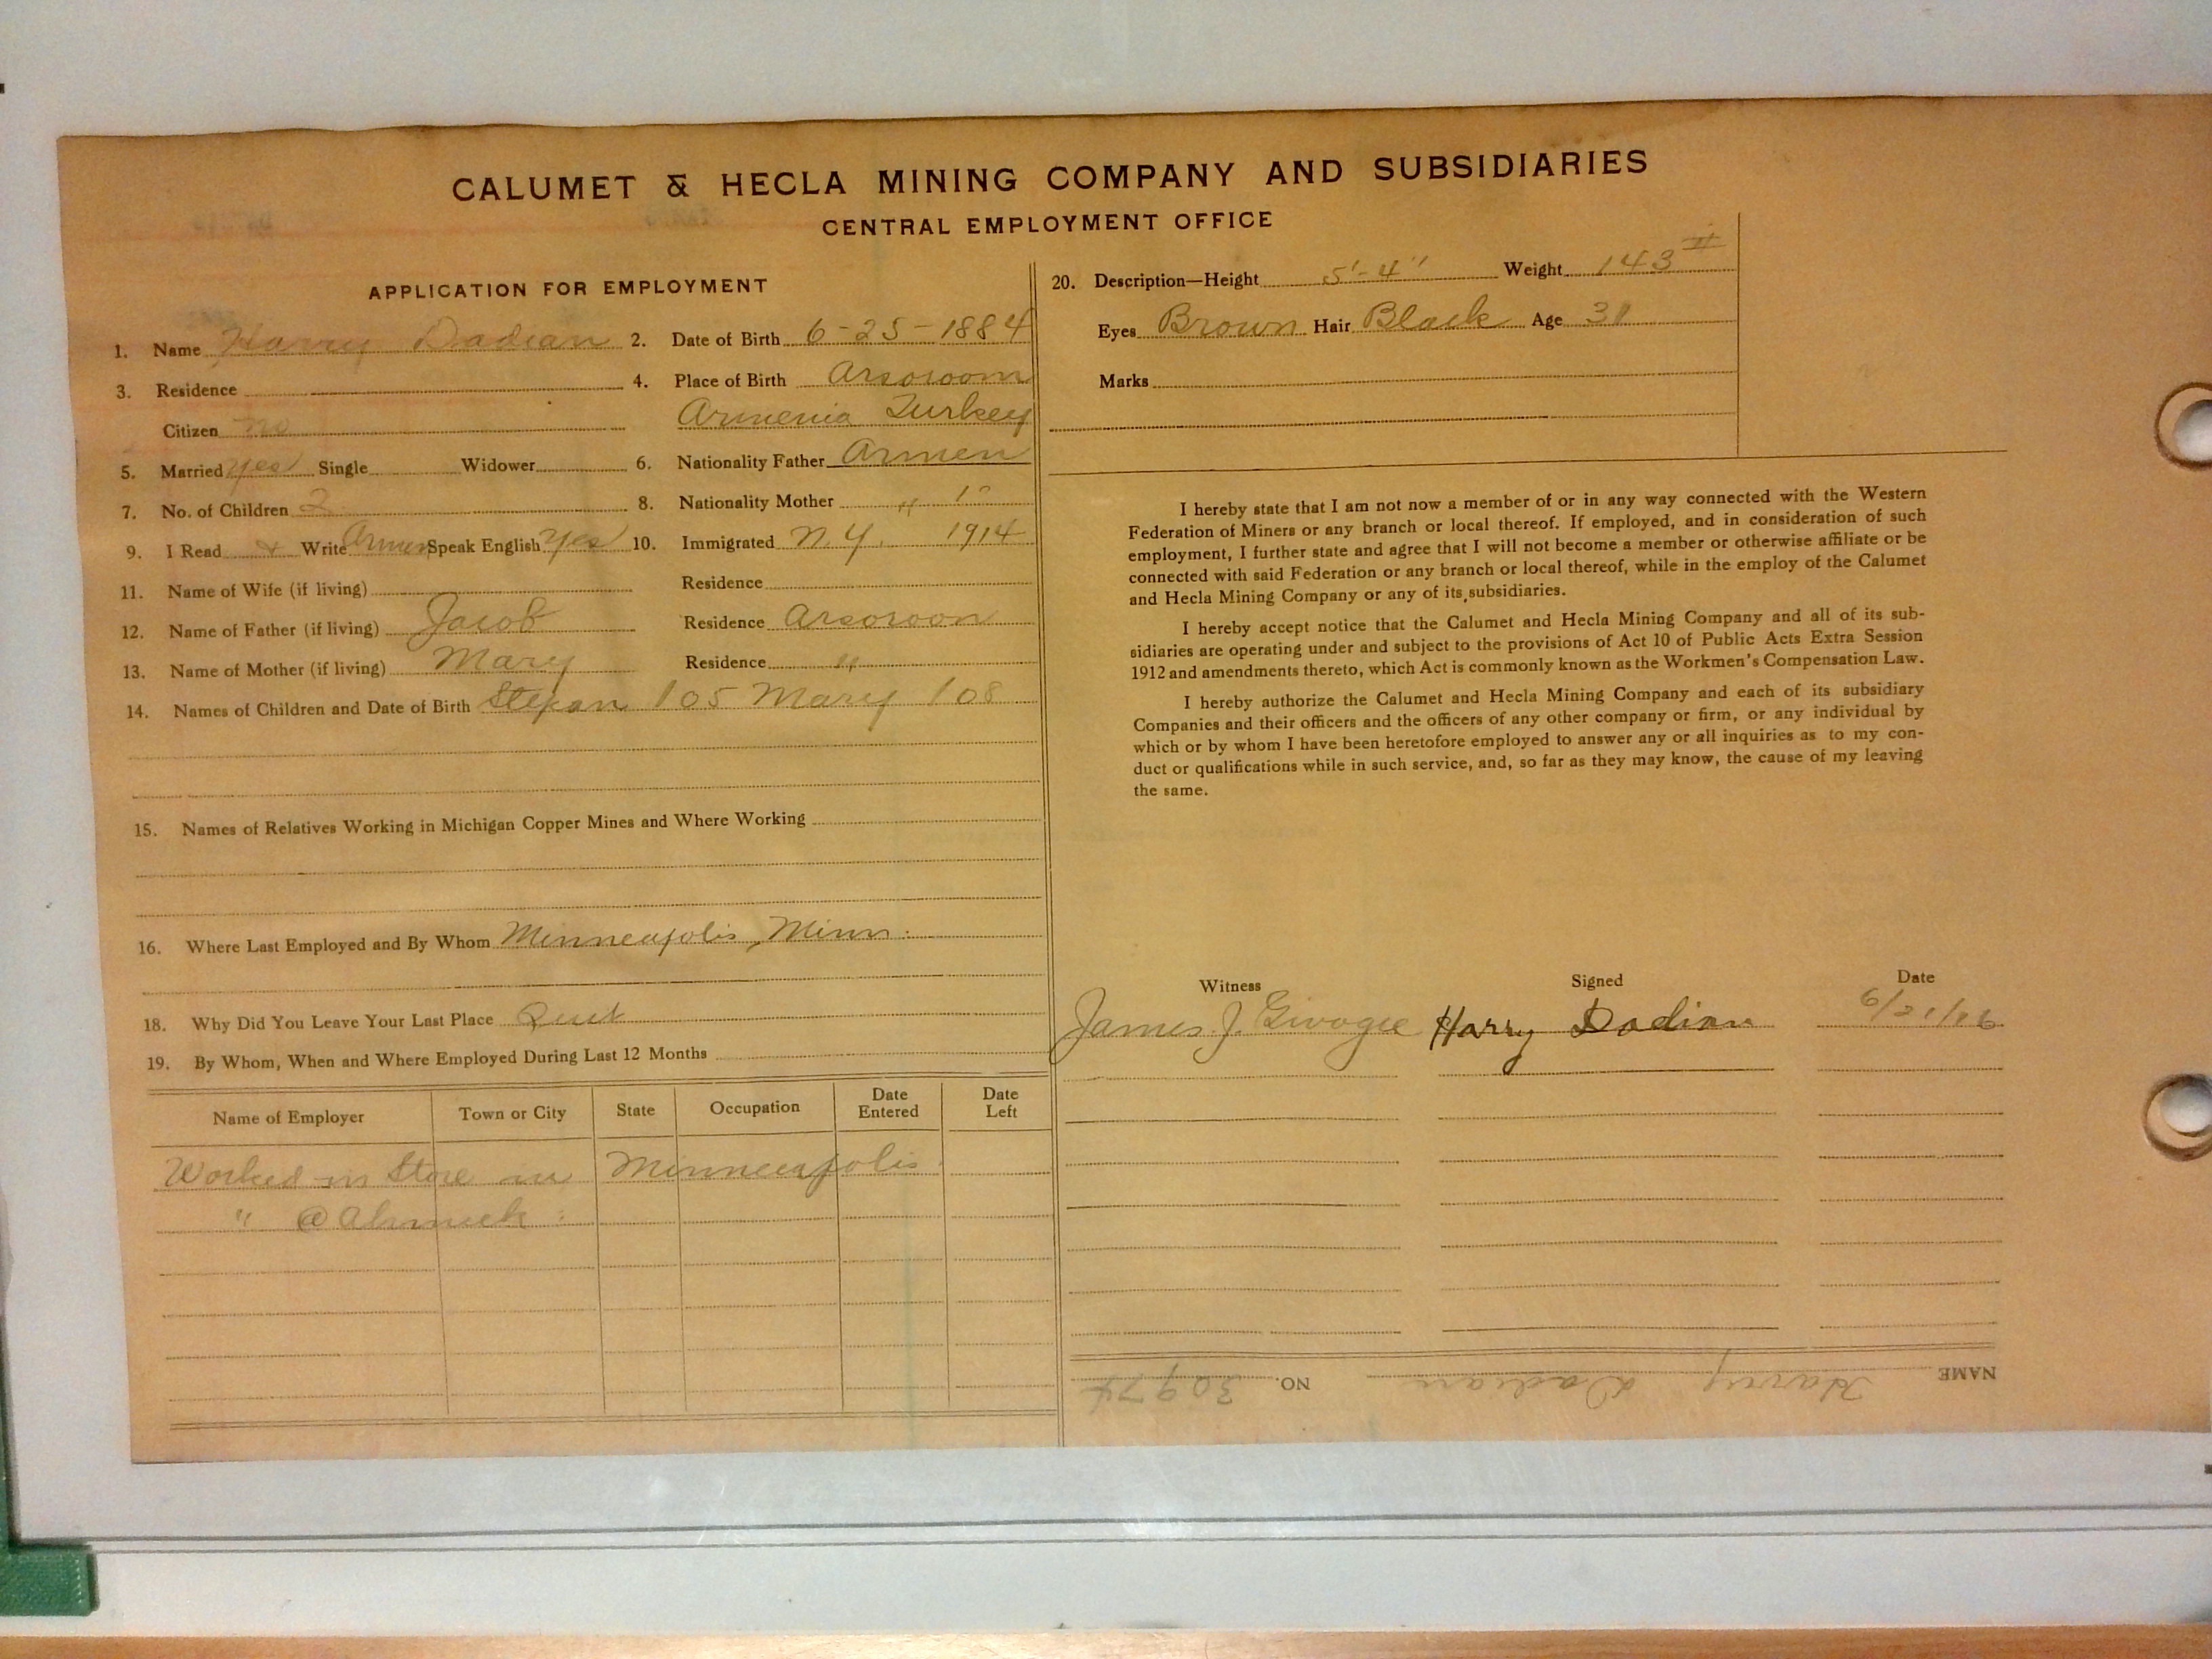 CALUMET & HECLA MINING COMPANY AND SUBSIDIARIES
CENTRAL EMPLOYMENT OFFICE
APPLICATION FOR EMPLOYMENT
1. Name Harry Dadian 2. Date of Birth 6-25-1884
3. Residence 4. Place of Birth Arsoroom
Citizen no Armenia Turkey
5. Married yes Single Widower 6. Nationality Father Armen
7. No. of Children 2 8. Nationality Mother " "
9. I Read & Write Armen Speak English yes 10. Immigrated N.Y. 1914
11. Name of Wife (if living) Residence
12. Name of Father (if living) Jacob Residence Arsoroon
13. Name of Mother (if living) Mary Residence "
14. Names of Children and Date of Birth Stepan 105 Mary 108
15. Names of Relatives Working in Michigan Copper Mines and Where Working
16. Where Last Employed and By Whom Minneapolis, Minn.
18. Why Did You Leave Your Last Place Quit
19. By Whom, When and Where Employed During Last 12 Months
Name of Employer Town or City State Occupation Date Entered Date Left
Worked in Store in Minneapolis
" @ Ahmeek
20. Description—Height 5'-4" Weight 143 #
Eyes Brown Hair Black Age 31
Marks
I hereby state that I am not now a member of or in any way connected with the Western
Federation of Miners or any branch or local thereof. If employed, and in consideration of such
employment, I further state and agree that I will not become a member or otherwise affiliate or be
connected with said Federation or any branch or local thereof, while in the employ of the Calumet
and Hecla Mining Company or any of its subsidiaries.
I hereby accept notice that the Calumet and Hecla Mining Company and all of its sub-
sidiaries are operating under and subject to the provisions of Act 10 of Public Acts Extra Session
1912 and amendments thereto, which Act is commonly known as the Workmen's Compensation Law.
I hereby authorize the Calumet and Hecla Mining Company and each of its subsidiary
Companies and their officers and the officers of any other company or firm, or any individual by
which or by whom I have been heretofore employed to answer any or all inquiries as to my con-
duct or qualifications while in such service, and, so far as they may know, the cause of my leaving
the same.
Witness Signed Date
James J. Harry Dadian
NAME Harry Dadian NO. 30974